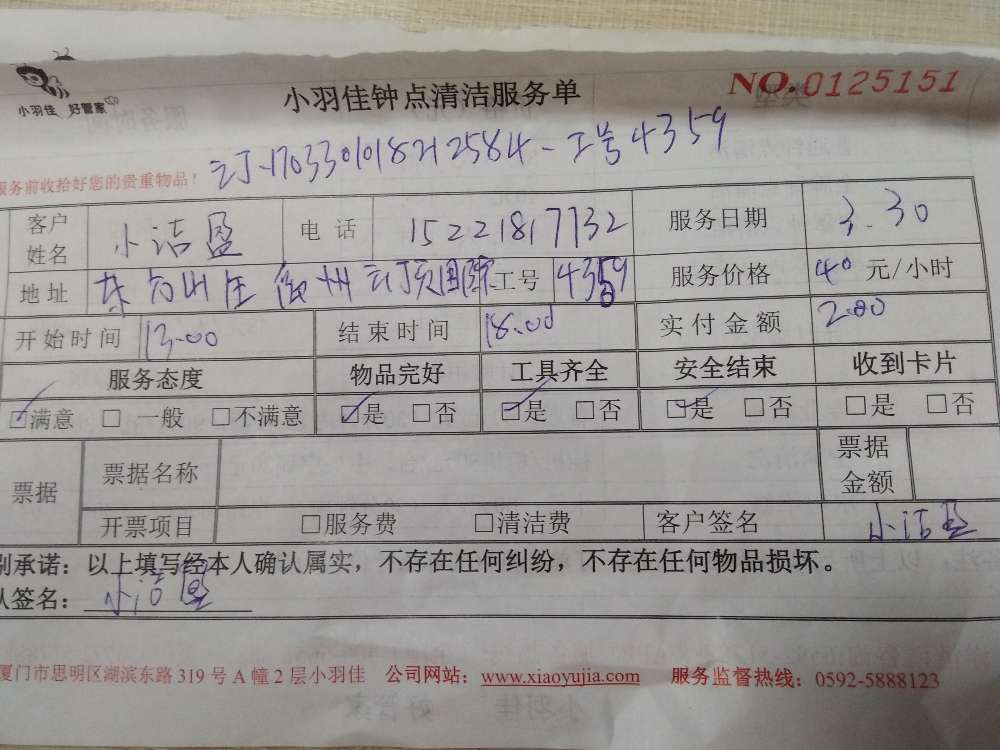 小羽佳 好管家
小羽佳钟点清洁服务单
NO.0125151
订-170330101821 2584-工号4359
服务前收拾好您的贵重物品！
客户姓名 小洁盈 电话 15221817732 服务日期 3.30
地址 州 订顶国际 工号 4359 服务价格 40 元/小时
开始时间 13.00 结束时间 18.00 实付金额 200
服务态度 物品完好 工具齐全 安全结束 收到卡片
☑满意 □ 一般 □不满意 ☑是 □否 ☑是 □否 ☑是 □否 □是 □否
票据 票据名称 票据金额
开票项目 □服务费 □清洁费 客户签名 小洁盈
别承诺：以上填写经本人确认属实，不存在任何纠纷，不存在任何物品损坏。
人签名：小洁盈
厦门市思明区湖滨东路 319 号 A 幢 2 层小羽佳 公司网站：www.xiaoyujia.com 服务监督热线：0592-5888123